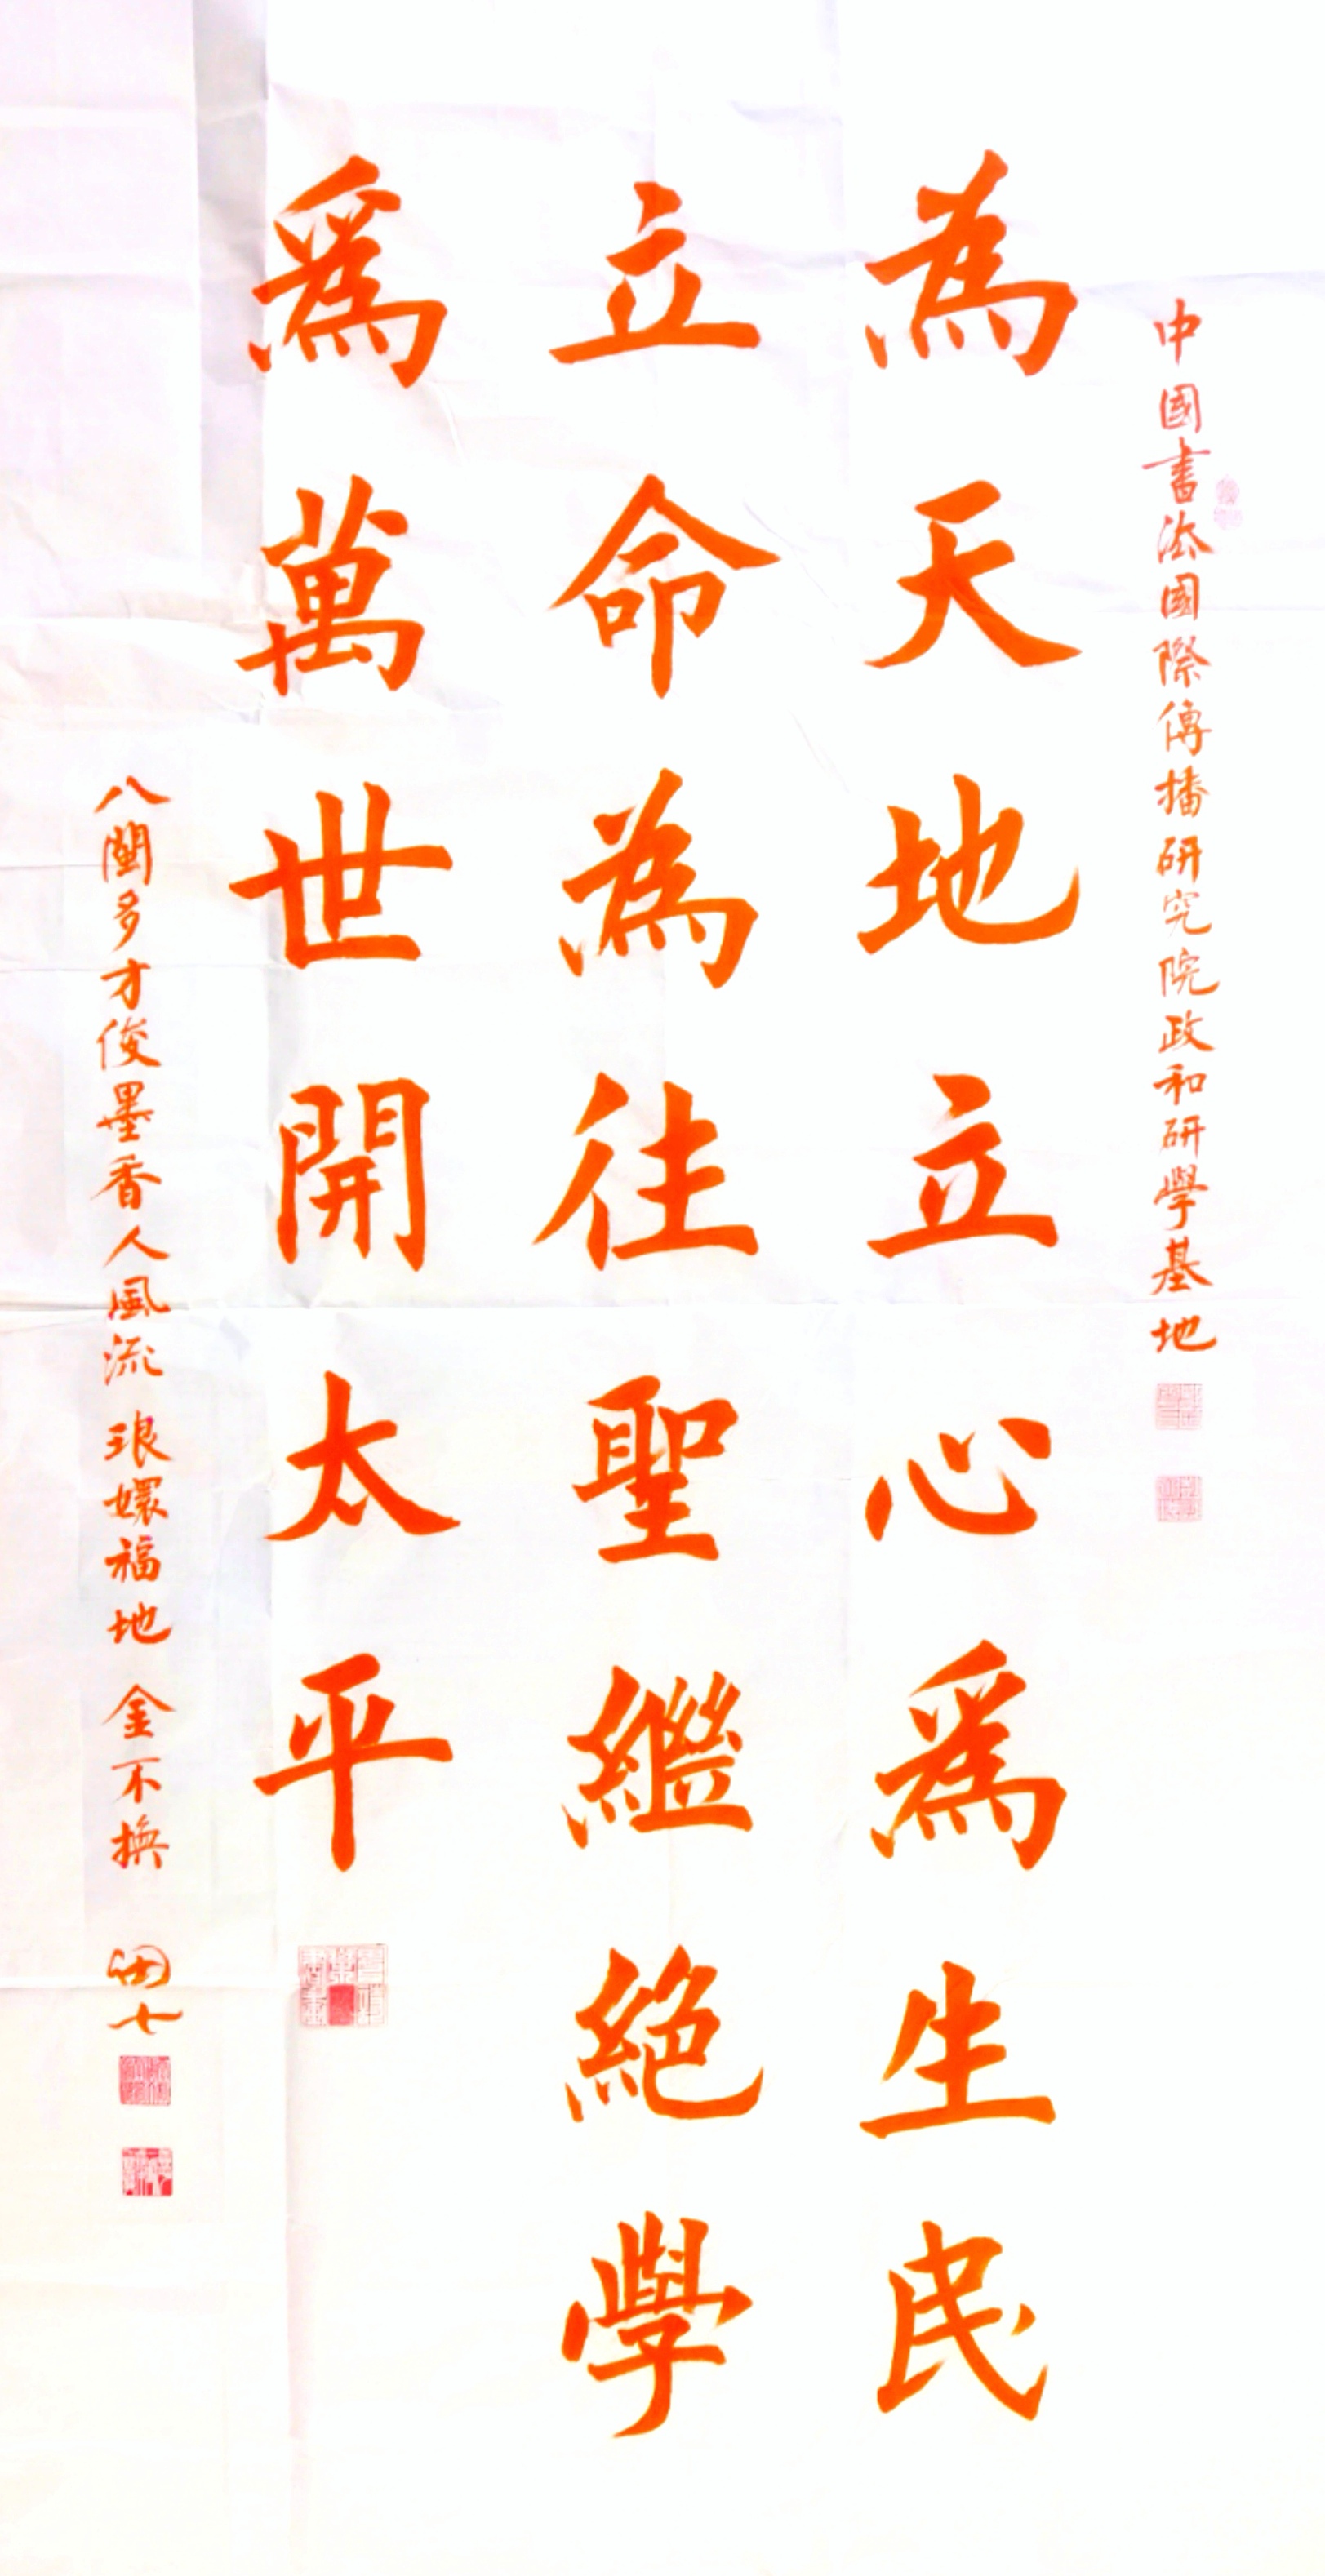 中國書法國際傳播研究院政和研學基地
為天地立心爲生民
立命為往聖繼絕學
爲萬世開太平
八閩多才俊墨香人風流 琅嬛福地 金不換